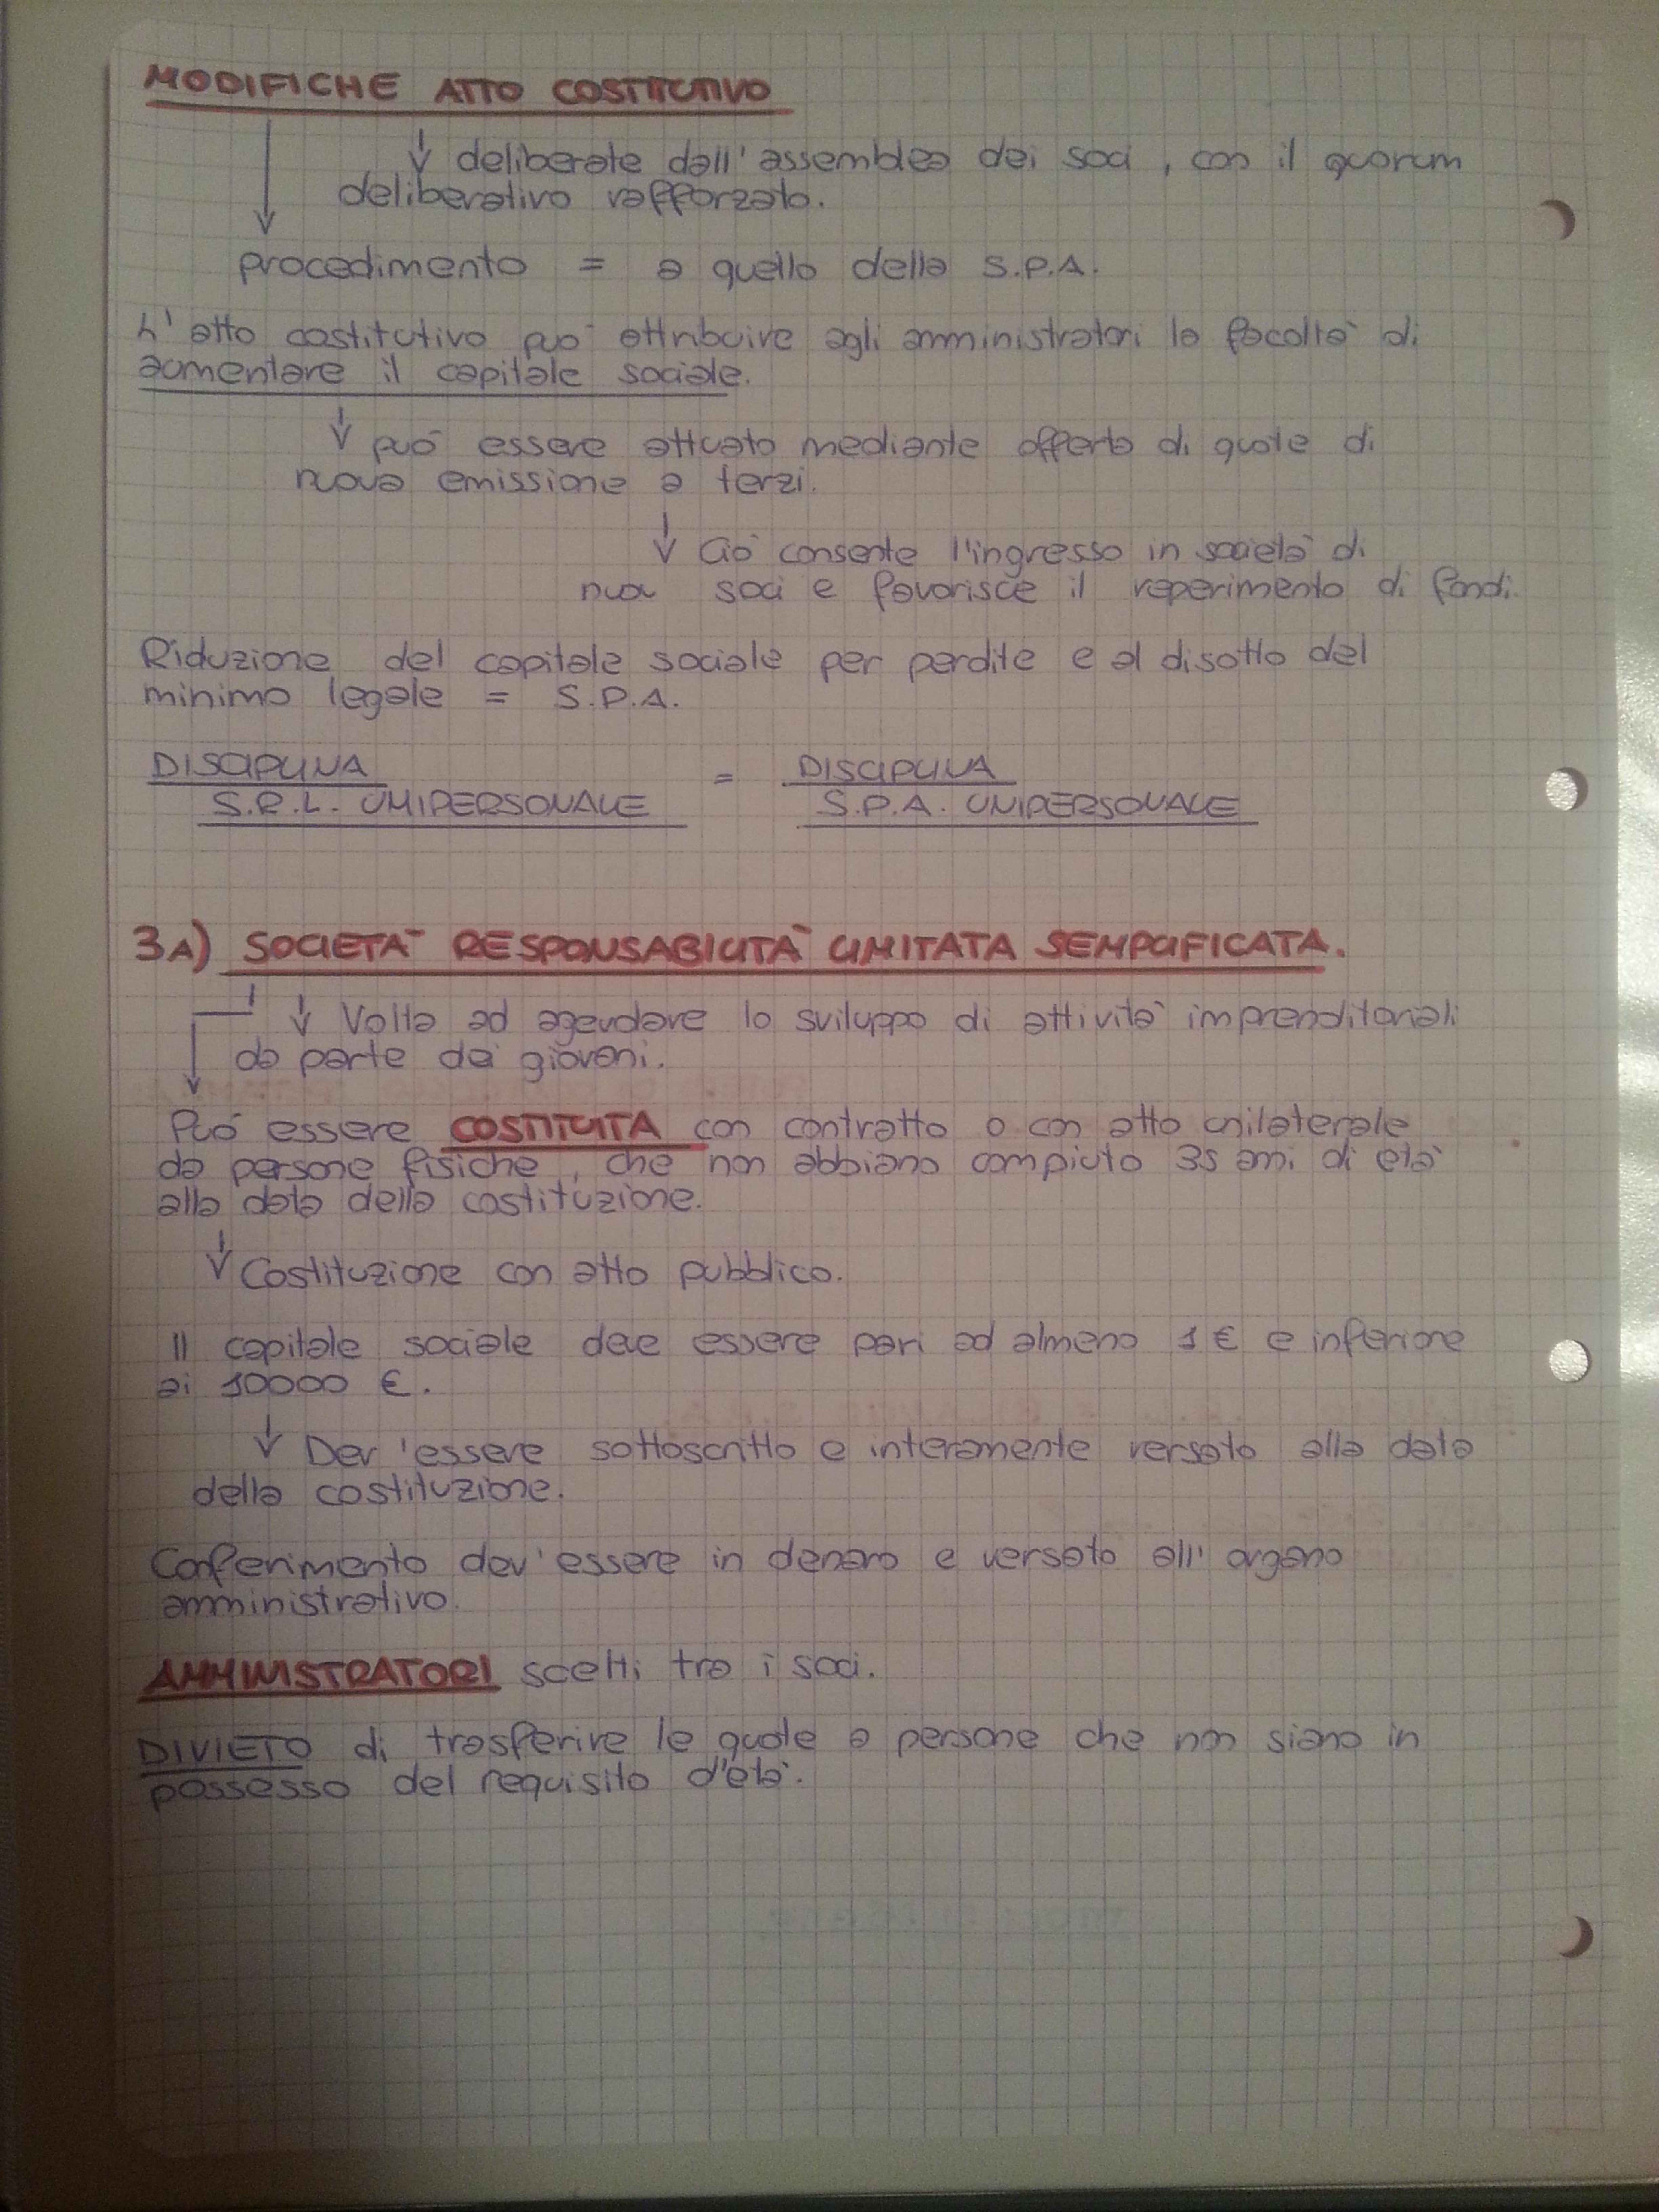 MODIFICHE ATTO COSTITUTIVO
deliberate dall'assemblea dei soci, con il quorum
deliberativo rafforzato.
procedimento = a quello della S.P.A.
L'atto costitutivo può attribuire agli amministratori la facoltà di
aumentare il capitale sociale.
può essere attuato mediante offerta di quote di
nuova emissione a terzi.
Ciò consente l'ingresso in società di
nuovi soci e favorisce il reperimento di fondi.
Riduzione del capitale sociale per perdite e al disotto del
minimo legale = S.P.A.
DISCIPLINA = DISCIPLINA
S.R.L. UNIPERSONALE S.P.A. UNIPERSONALE
3A) SOCIETÀ RESPONSABILITÀ LIMITATA SEMPLIFICATA.
Volta ad agevolare lo sviluppo di attività imprenditoriali
da parte dei giovani.
Può essere COSTITUITA con contratto o con atto unilaterale
da persone fisiche, che non abbiano compiuto 35 anni di età
alla data della costituzione.
Costituzione con atto pubblico.
Il capitale sociale deve essere pari ad almeno 1 € e inferiore
ai 10000 €.
Dev'essere sottoscritto e interamente versato alla data
della costituzione.
Conferimento dev'essere in denaro e versato all'organo
amministrativo.
AMMINISTRATORI scelti tra i soci.
DIVIETO di trasferire le quote a persone che non siano in
possesso del requisito d'età.